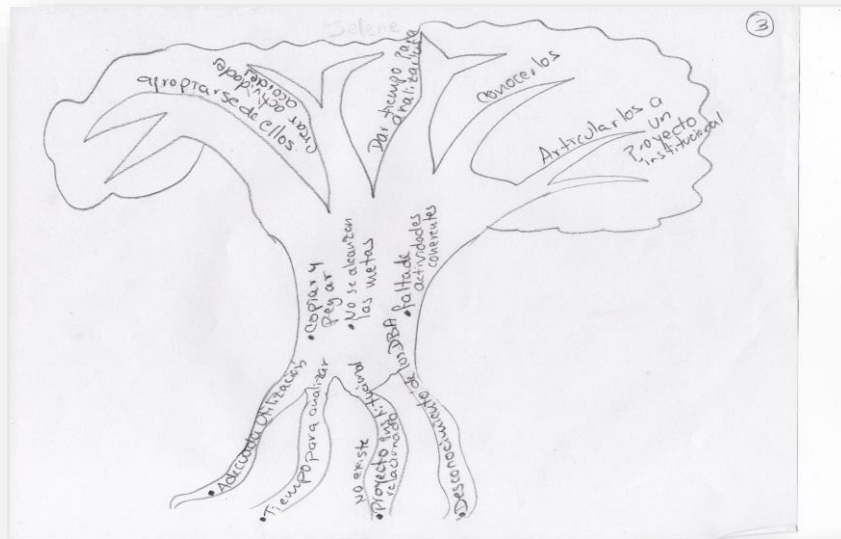 Selene
3
apropiarse de ellos
crear
actividades
acordes
Dar tiempo para
analizarlos
Conocerlos
Articularlos a
un
Proyecto
institucional
• Copiar y
pegar
• No se alcanzan
las metas
• falta de
actividades
coherentes
• Adecuada utilización
• Tiempo para analizar
No existe
• Proyecto institucional
relacionado
• Desconocimiento de los DBA